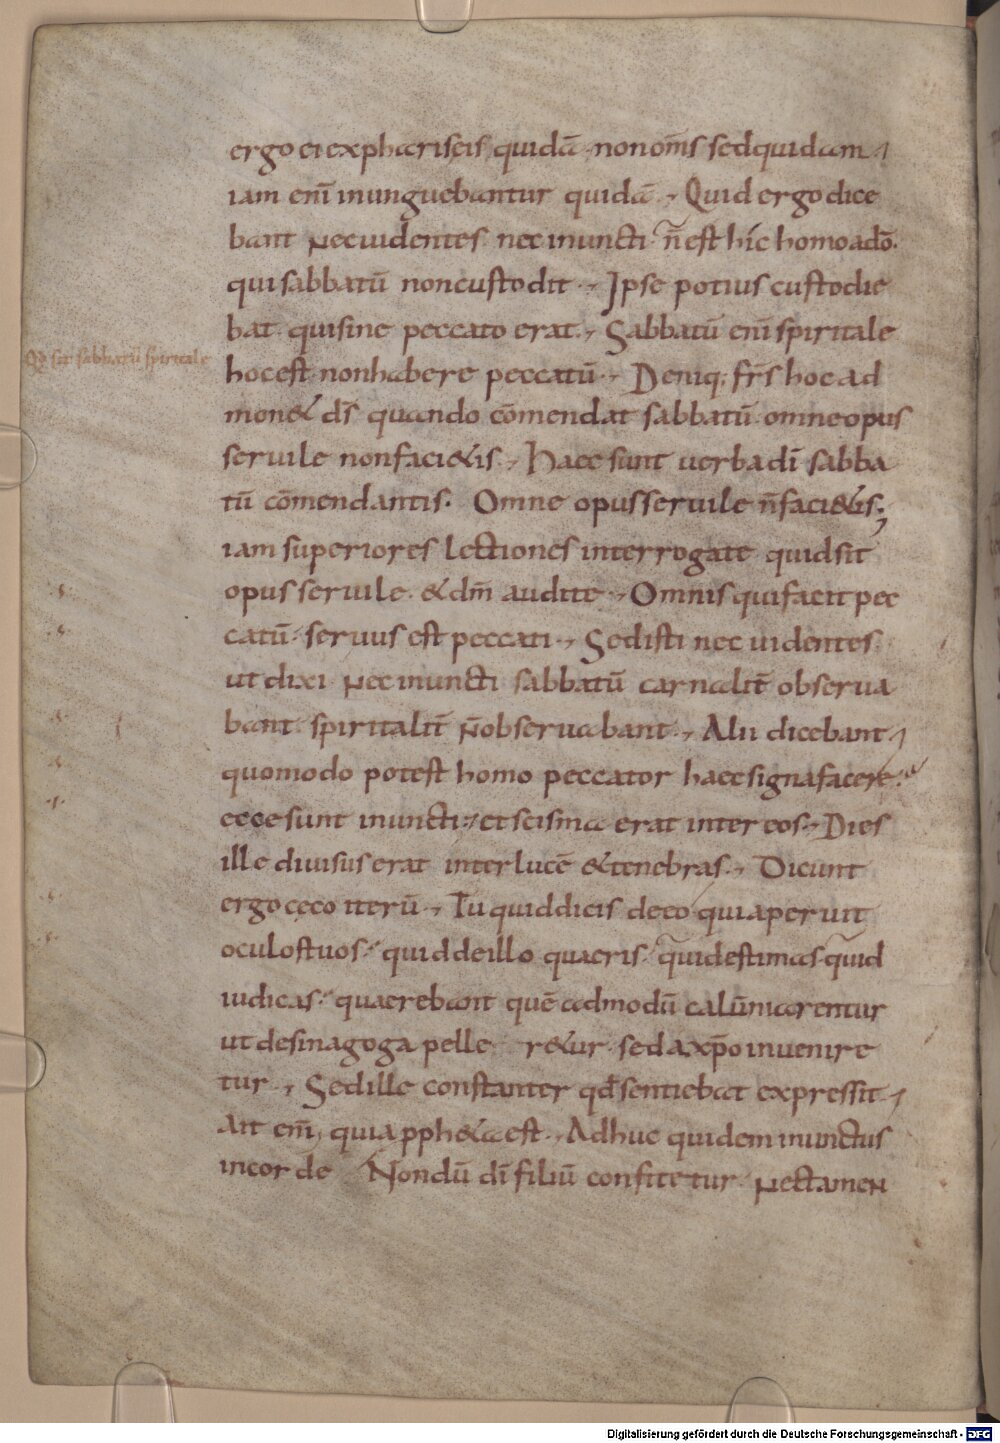 ergo ei expharisęis quidā · non om̄s sed quidam ·
iam enī inunguebantur quidā · Quid ergo dice
bant nec uidentes nec inuncti · n̄ est hic homo adō ·
qui sabbatū non custodit · Ipse potius custodie
bat qui sine peccato erat · Sabbatū enī spiritale
Qđ sit sabbatū spiritale
hoc est non habere peccatū · Deniq; fr̄s hoc ad
mon& d̄s quando cōmendat sabbatū omne opus
seruile non faci&is · Haec sunt uerba dī sabba
tū cōmendantis · Omne opus seruile n̄ faci&is ;
iam superiores lectiones interrogate quid sit
opus seruile · & dn̄m audite · Omnis qui facit pec
catū · seruus est peccati · Sed isti nec uidentes
ut dixi nec inuncti sabbatū carnalit̄ obserua
bant spiritalit̄ n̄ obseruabant · Alii dicebant ·
quomodo potest homo peccator haec signa facere ·
ecce sunt inuncti · et scisma erat inter eos · Dies
ille diuisus erat inter lucē & tenebras · Dicunt
ergo cęco iterū · Tu quid dicis de eo qui aperuit
oculos tuos · quid de illo quaeris · quid estimas · quid
iudicas · quaerebant quē admodū calūniarentur
ut de sinagoga pelle r&ur · sed a xp̄o inuenire
tur · Sed ille constanter qđ sentiebat expressit ·
Ait enī, quia pph&a est · Adhuc quidem inunctus
in corde Nondū dī filiū confitetur · nec tamen
Digitalisierung gefördert durch die Deutsche Forschungsgemeinschaft - DFG